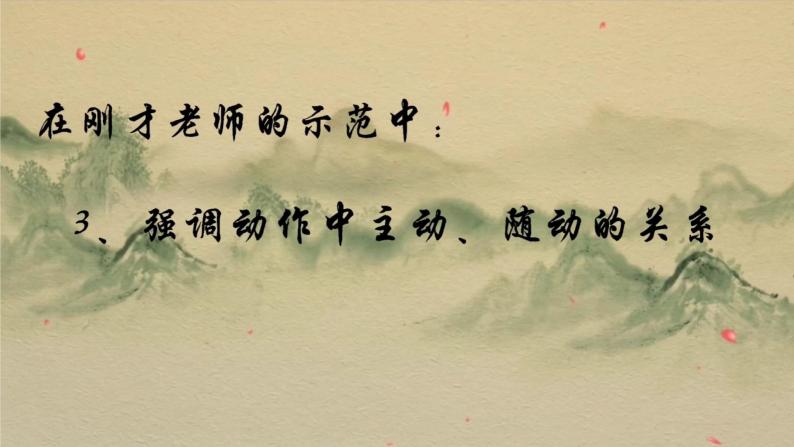 在刚才老师的示范中：
3、强调动作中主动、随动的关系